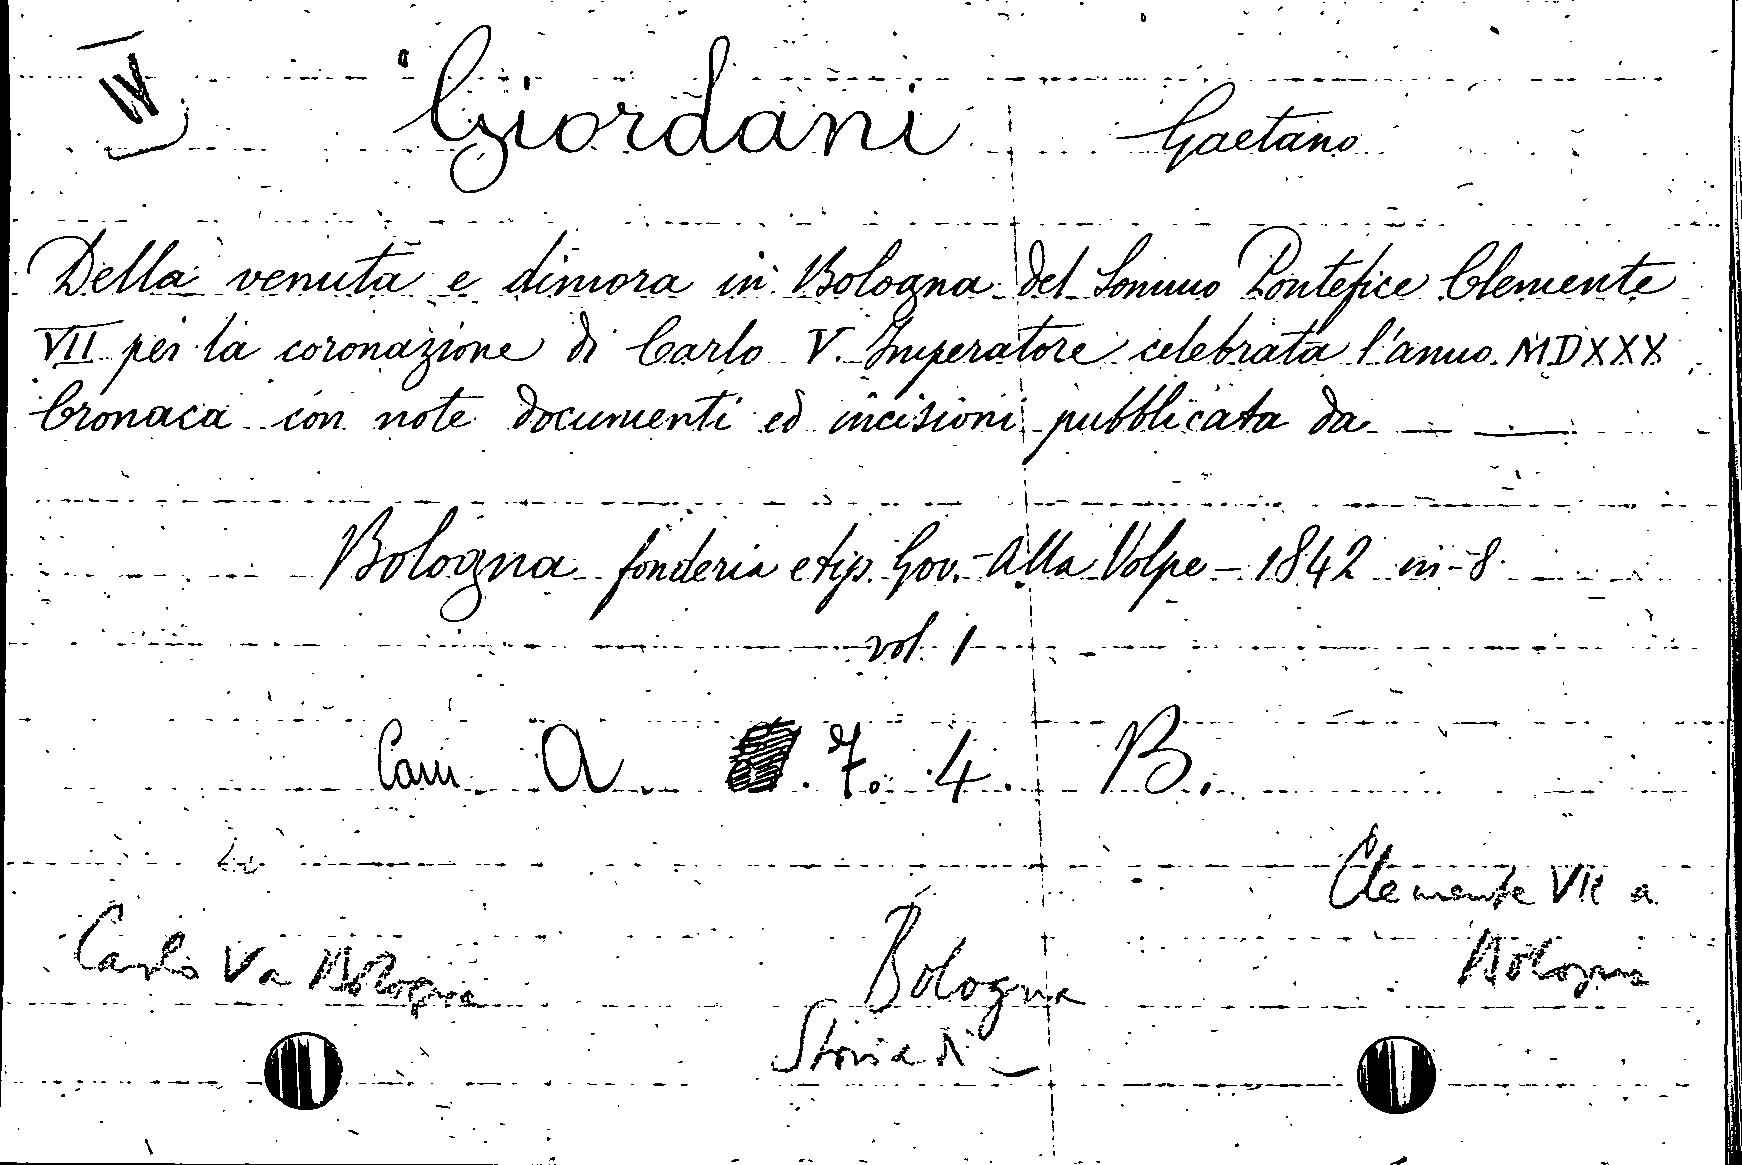 IV
Giordani Gaetano
Della venuta e dimora in Bologna del Sommo Pontefice Clemente
VII per la coronazione di Carlo V. Imperatore celebrata l'anno MDXXX
Cronaca con note documenti ed incisioni pubblicata da — —
Bologna fonderia e tip. Gov. - Alla Volpe - 1842 in-8.
vol. 1
Cam. A. 7. 4. B.
Clemente VII a
Bologna
Carlo V a Bologna
Bologna
Storia di —